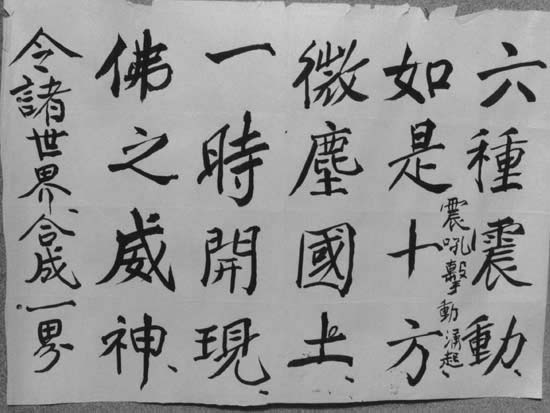 六種震動、
震吼擊動涌起、
如是十方
微塵國土、
一時開現、
佛之威神、
令諸世界合成一界